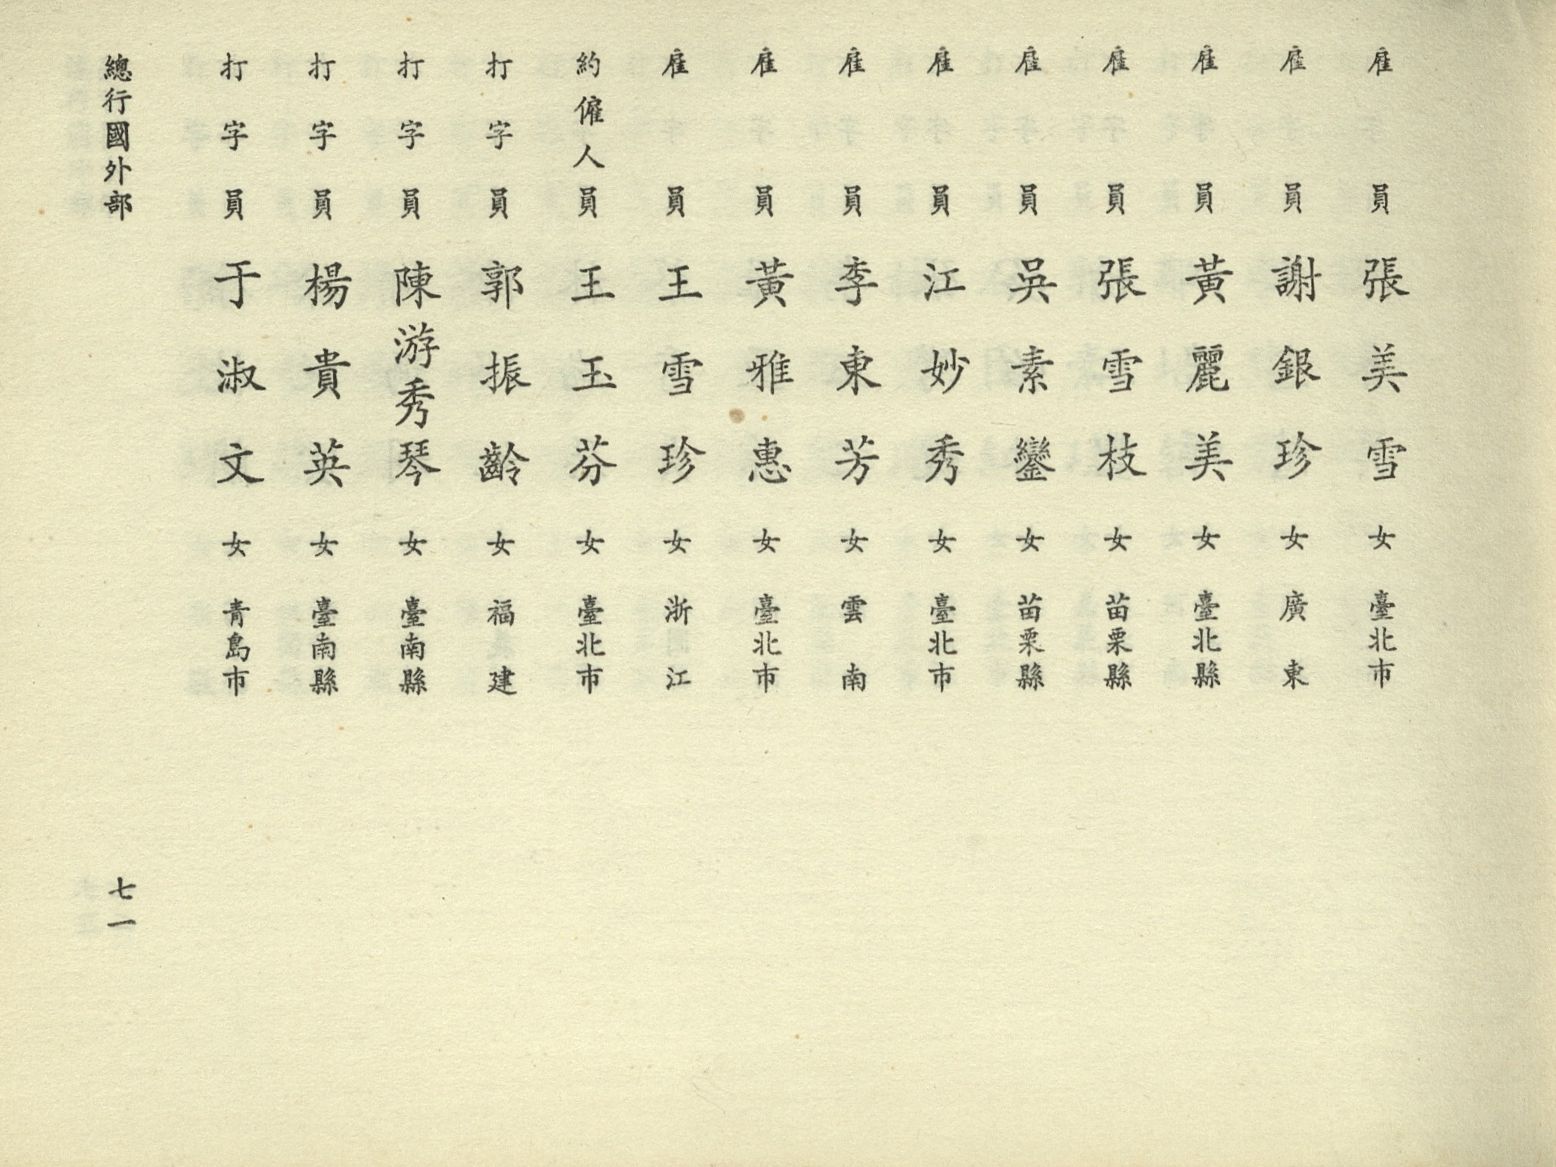 雇員張美雪女臺北市
雇員謝銀珍女廣東
雇員黃麗美女臺北縣
雇員張雪枝女苗栗縣
雇員吳素鑾女苗栗縣
雇員江妙秀女臺北市
雇員李東芳女雲南
雇員黃雅惠女臺北市
雇員王雪珍女浙江
約僱人員王玉芬女臺北市
打字員郭振齡女福建
打字員陳游秀琴女臺南縣
打字員楊貴英女臺南縣
打字員于淑文女青島市
總行國外部
七一